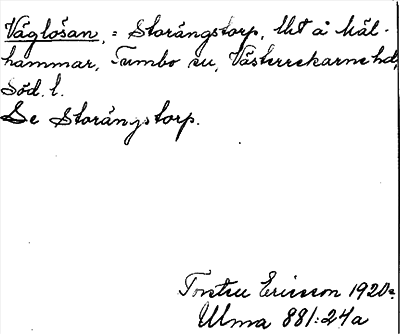 Våglösan, = Storängstorp, lht å Mäl-
hammar, Tumbo sn, Västerrekarne hd,
Söd. l.
Se Storängstorp.
Torsten Ericsson 1920
Ulma 881:24a